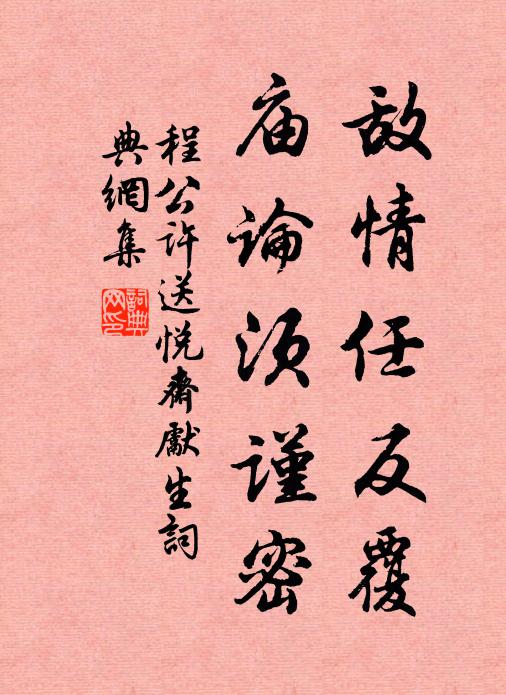 敌情任反覆
庙论须谨密
程公许送悦斋献生词
典網集
詞典網印